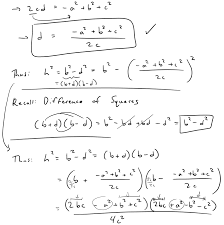 → 2cd = -a² + b² + c²
→ d = (-a² + b² + c²) / 2c ✓
Thus: h² = b² - d² = b² - ((-a² + b² + c²) / 2c)²
= (b+d)(b-d)
Recall: Difference of Squares
(b+d)(b-d) = b² - bd + bd - d² = b² - d²
Thus: h² = b² - d² = (b+d)(b-d)
= (b + (-a² + b² + c²) / 2c) (b - (-a² + b² + c²) / 2c)
= (2bc - a² + b² + c²)(2bc + a² - b² - c²) / 4c²